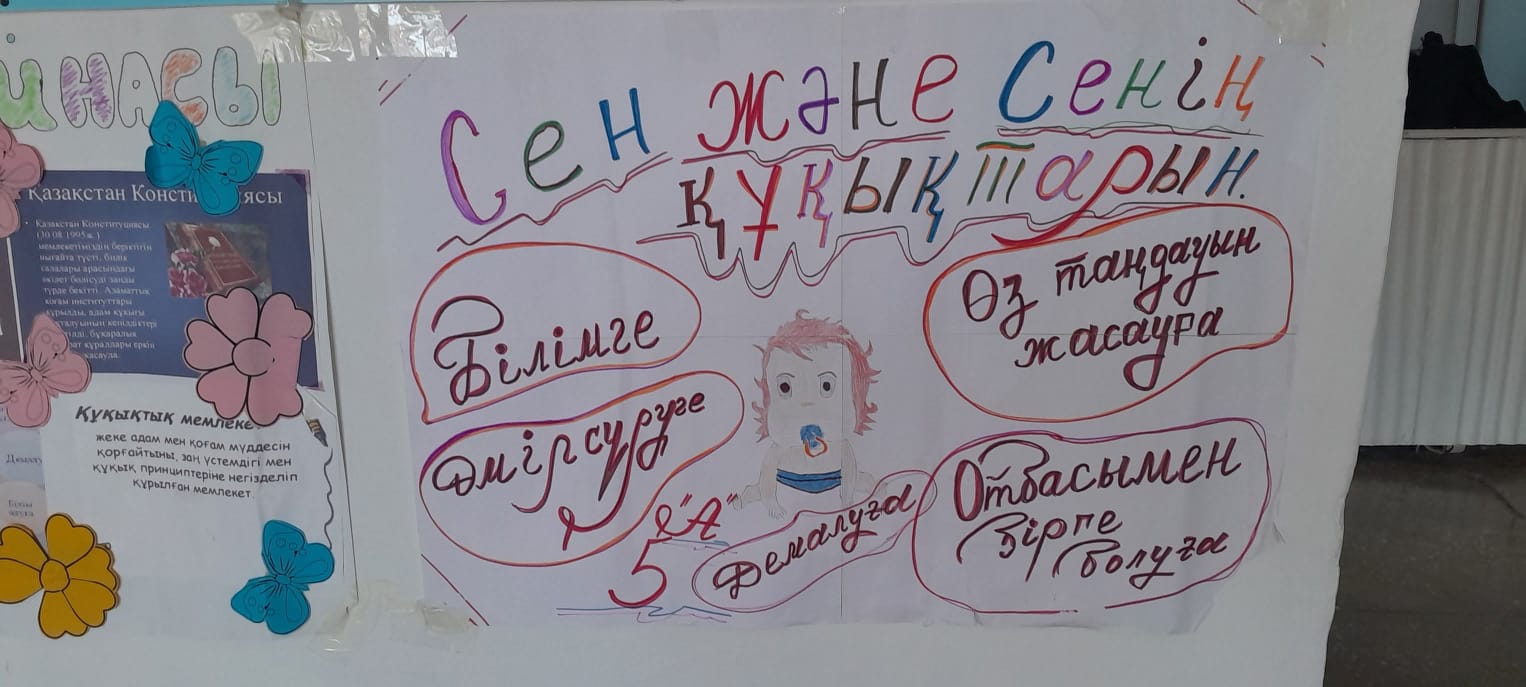 НАСЫ
Қазақстан Консти
ясы
Қазақстан Конституциясы
(30.08.1995ж.)
мемлекетіміздің беріктігін
нығайта түсті, билік
салалары арасындағы
өкілет бөлісуді заңды
түрде бекітті. Азаматтық
қоғам институттары
құрылды, адам құқығы
кепілдіктері
бұқаралық
құралдары еркін
жасауда.
Құқықтық мемлеке
жеке адам мен қоғам мүддесін
қорғайтыны, заң үстемдігі мен
құқық принциптеріне негізделіп
құрылған мемлекет.
Сен және Сенің
құқықтарын.
Білімге
Өз таңдауын
жасауға
Өмір сүруге
5 "А"
Демалуға
Отбасымен
бірге
болуға